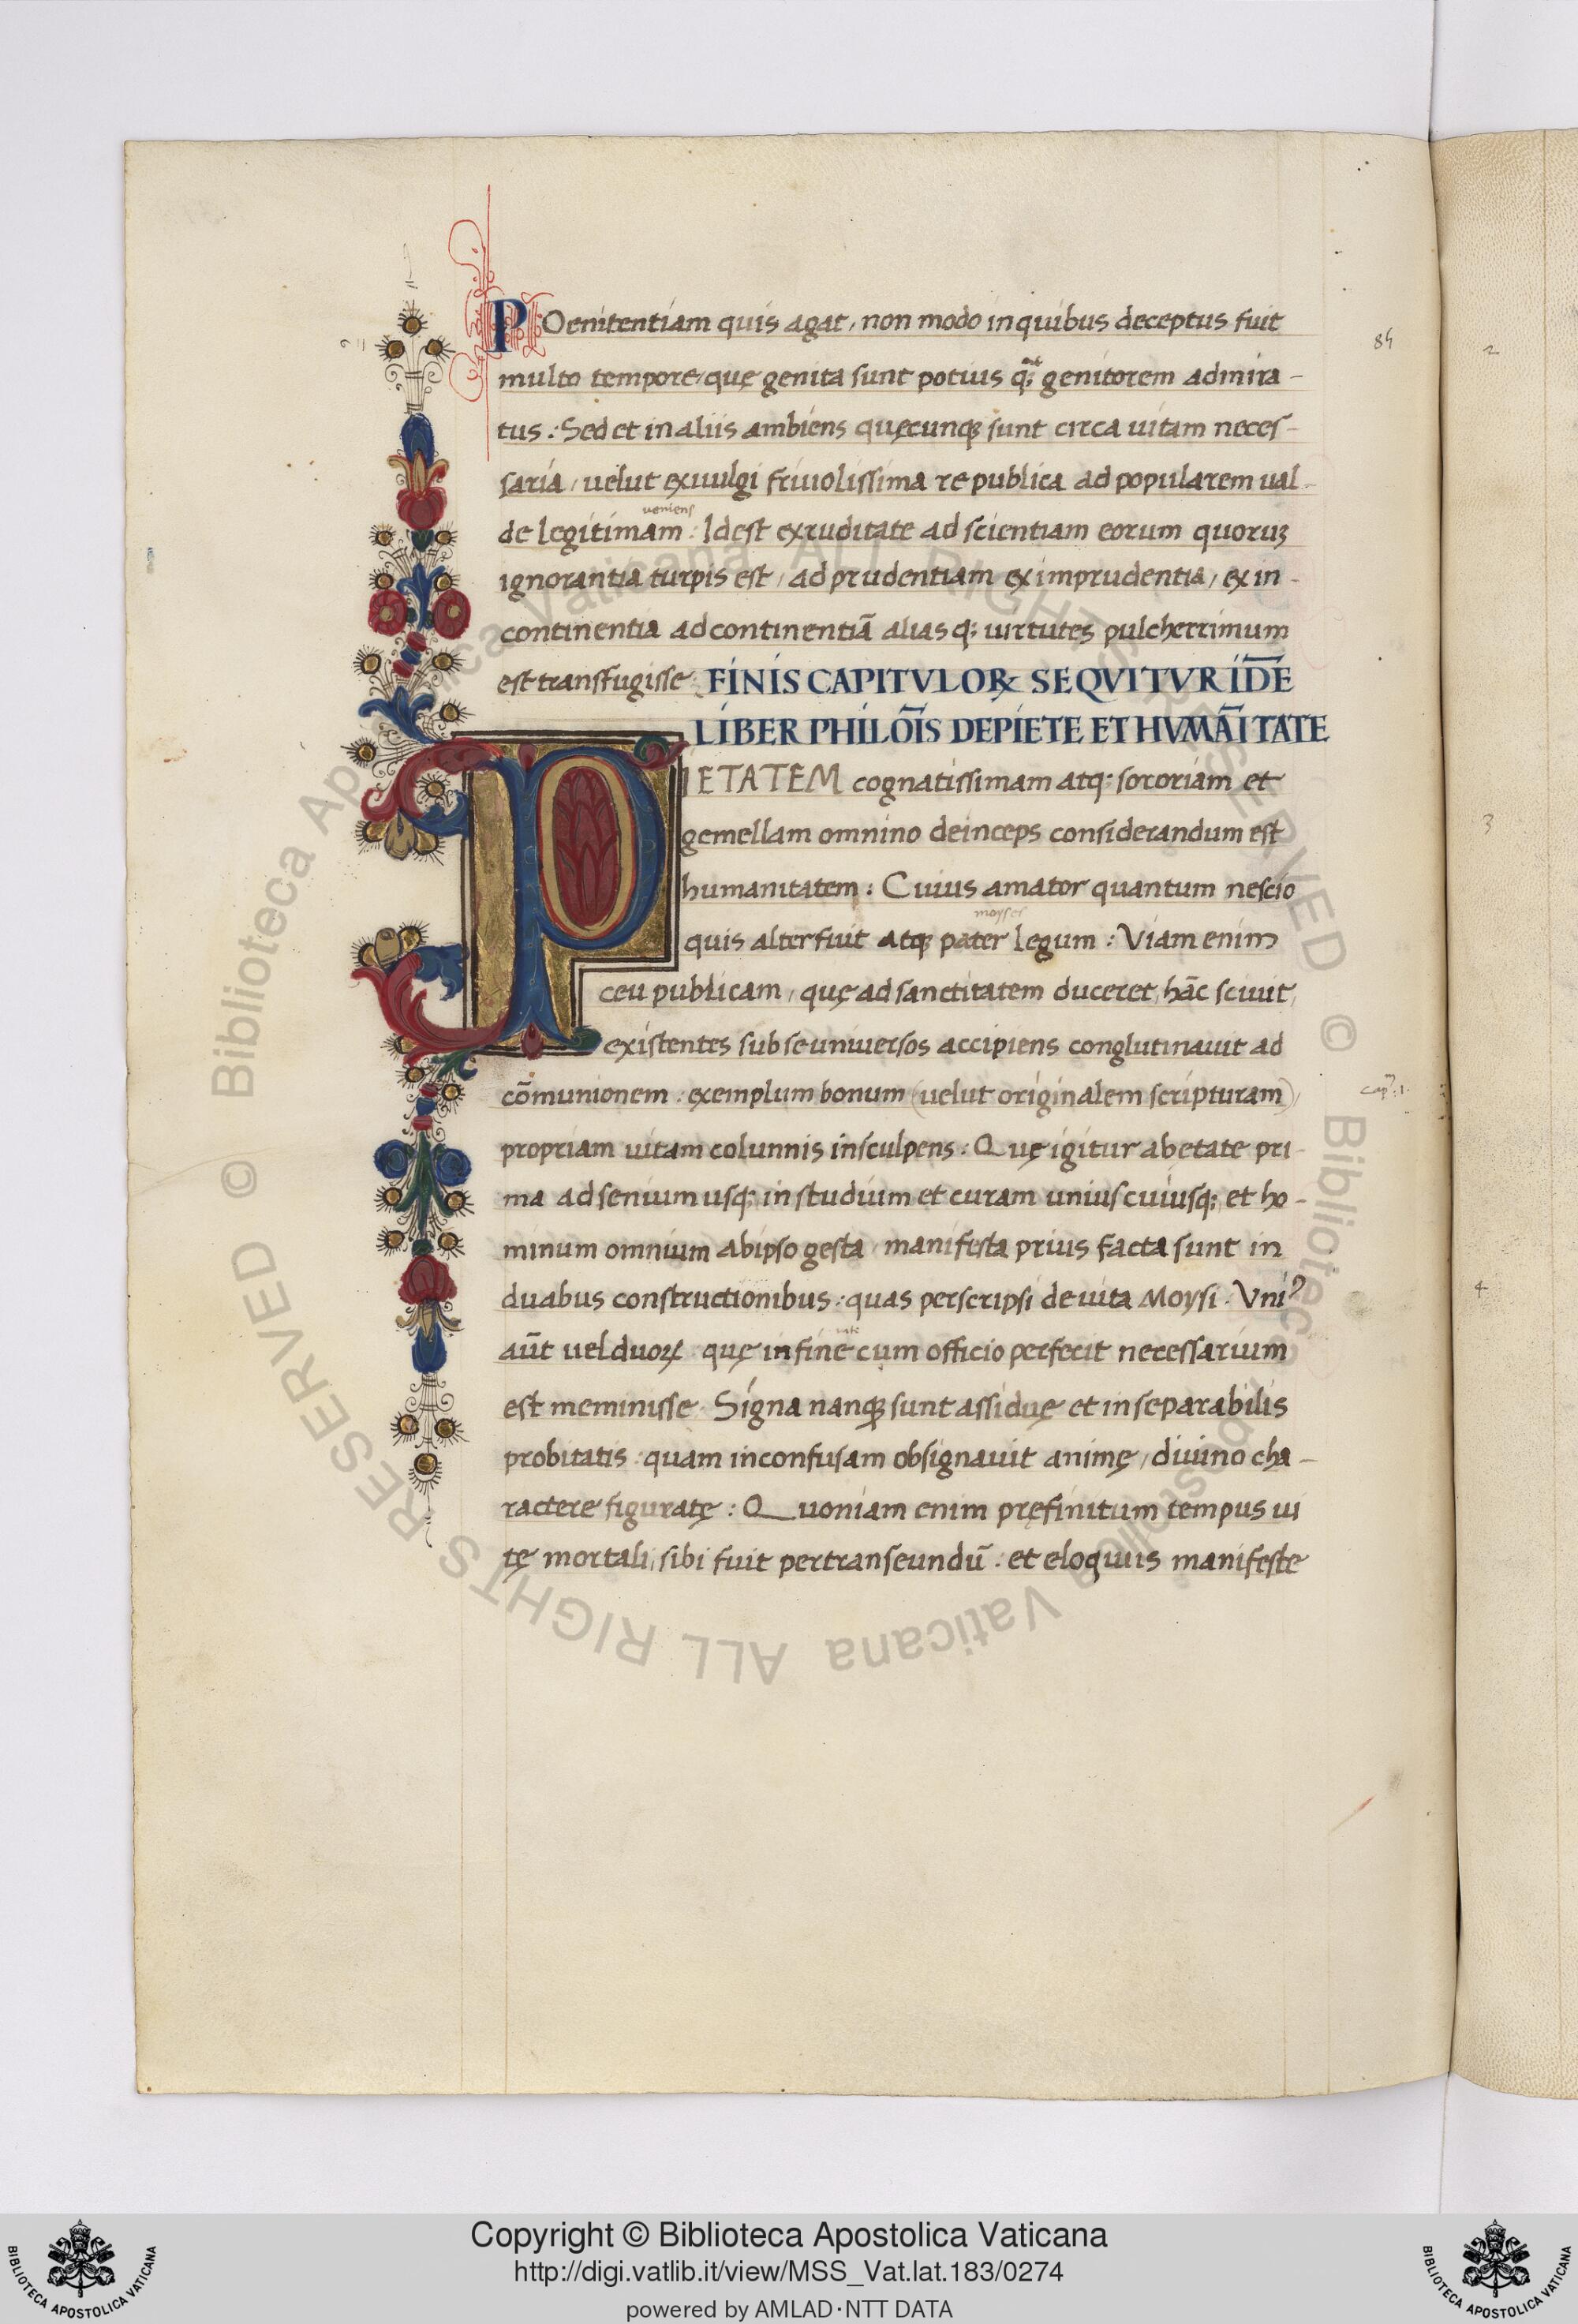 POenitentiam quis agat, non modo in quibus deceptus fuit
multo tempore, quę genita sunt potius q̃; genitorem admira-
tus: Sed et in aliis ambiens quęcunq; sunt circa uitam neces-
saria, uelut ex uulgi friuolissima re publica ad popularem ual-
ueniens
de legitimam: Idest ex ruditate ad scientiam eorum quoruʒ
ignorantia turpis est, ad prudentiam ex imprudentia, ex in-
continentia ad continentiã alias q; uirtutes pulcherrimum
est transfugisse. FINIS CAPITVLOꝜ SEQVITVR ID̅E
LIBER PHILO̅IS DE PIETE ET HVMA̅ITATE
PIETATEM cognatissimam atq; sororiam et
gemellam omnino deinceps considerandum est
humanitatem: Cuius amator quantum nescio
moyses
quis alter fuit atq; pater legum: Viam enim
ceu publicam, quę ad sanctitatem duceret, hãc sciuit,
existentes sub se uniuersos accipiens conglutinauit ad
cõmunionem: exemplum bonum (uelut originalem scripturam)
cap.m 1.
propriam uitam colunnis insculpens: Quę igitur ab etate pri-
ma ad senium usq; in studium et curam uniuscuiusq; et ho-
minum omnium ab ipso gesta, manifesta prius facta sunt in
duabus constructionibus: quas perscripsi de uita Moysi. Vniꝰ
aũt uel duoꝝ quę in fine cum officio perfecit necessarium
est meminisse. Signa nanq; sunt assiduę et inseparabilis
probitatis: quam inconfusam obsignauit animę, diuino cha-
ractere figuratę: Quoniam enim pręfinitum tempus ui
tę mortali, sibi fuit pertranseundũ: et eloquiis manifeste
2
3
4
Copyright © Biblioteca Apostolica Vaticana
http://digi.vatlib.it/view/MSS_Vat.lat.183/0274
powered by AMLAD·NTT DATA
BIBLIOTECA APOSTOLICA VATICANA
BIBLIOTECA APOSTOLICA VATICANA
© Biblioteca Apostolica Vaticana ALL RIGHTS RESERVED © Biblioteca Apostolica Vaticana ALL RIGHTS RESERVED